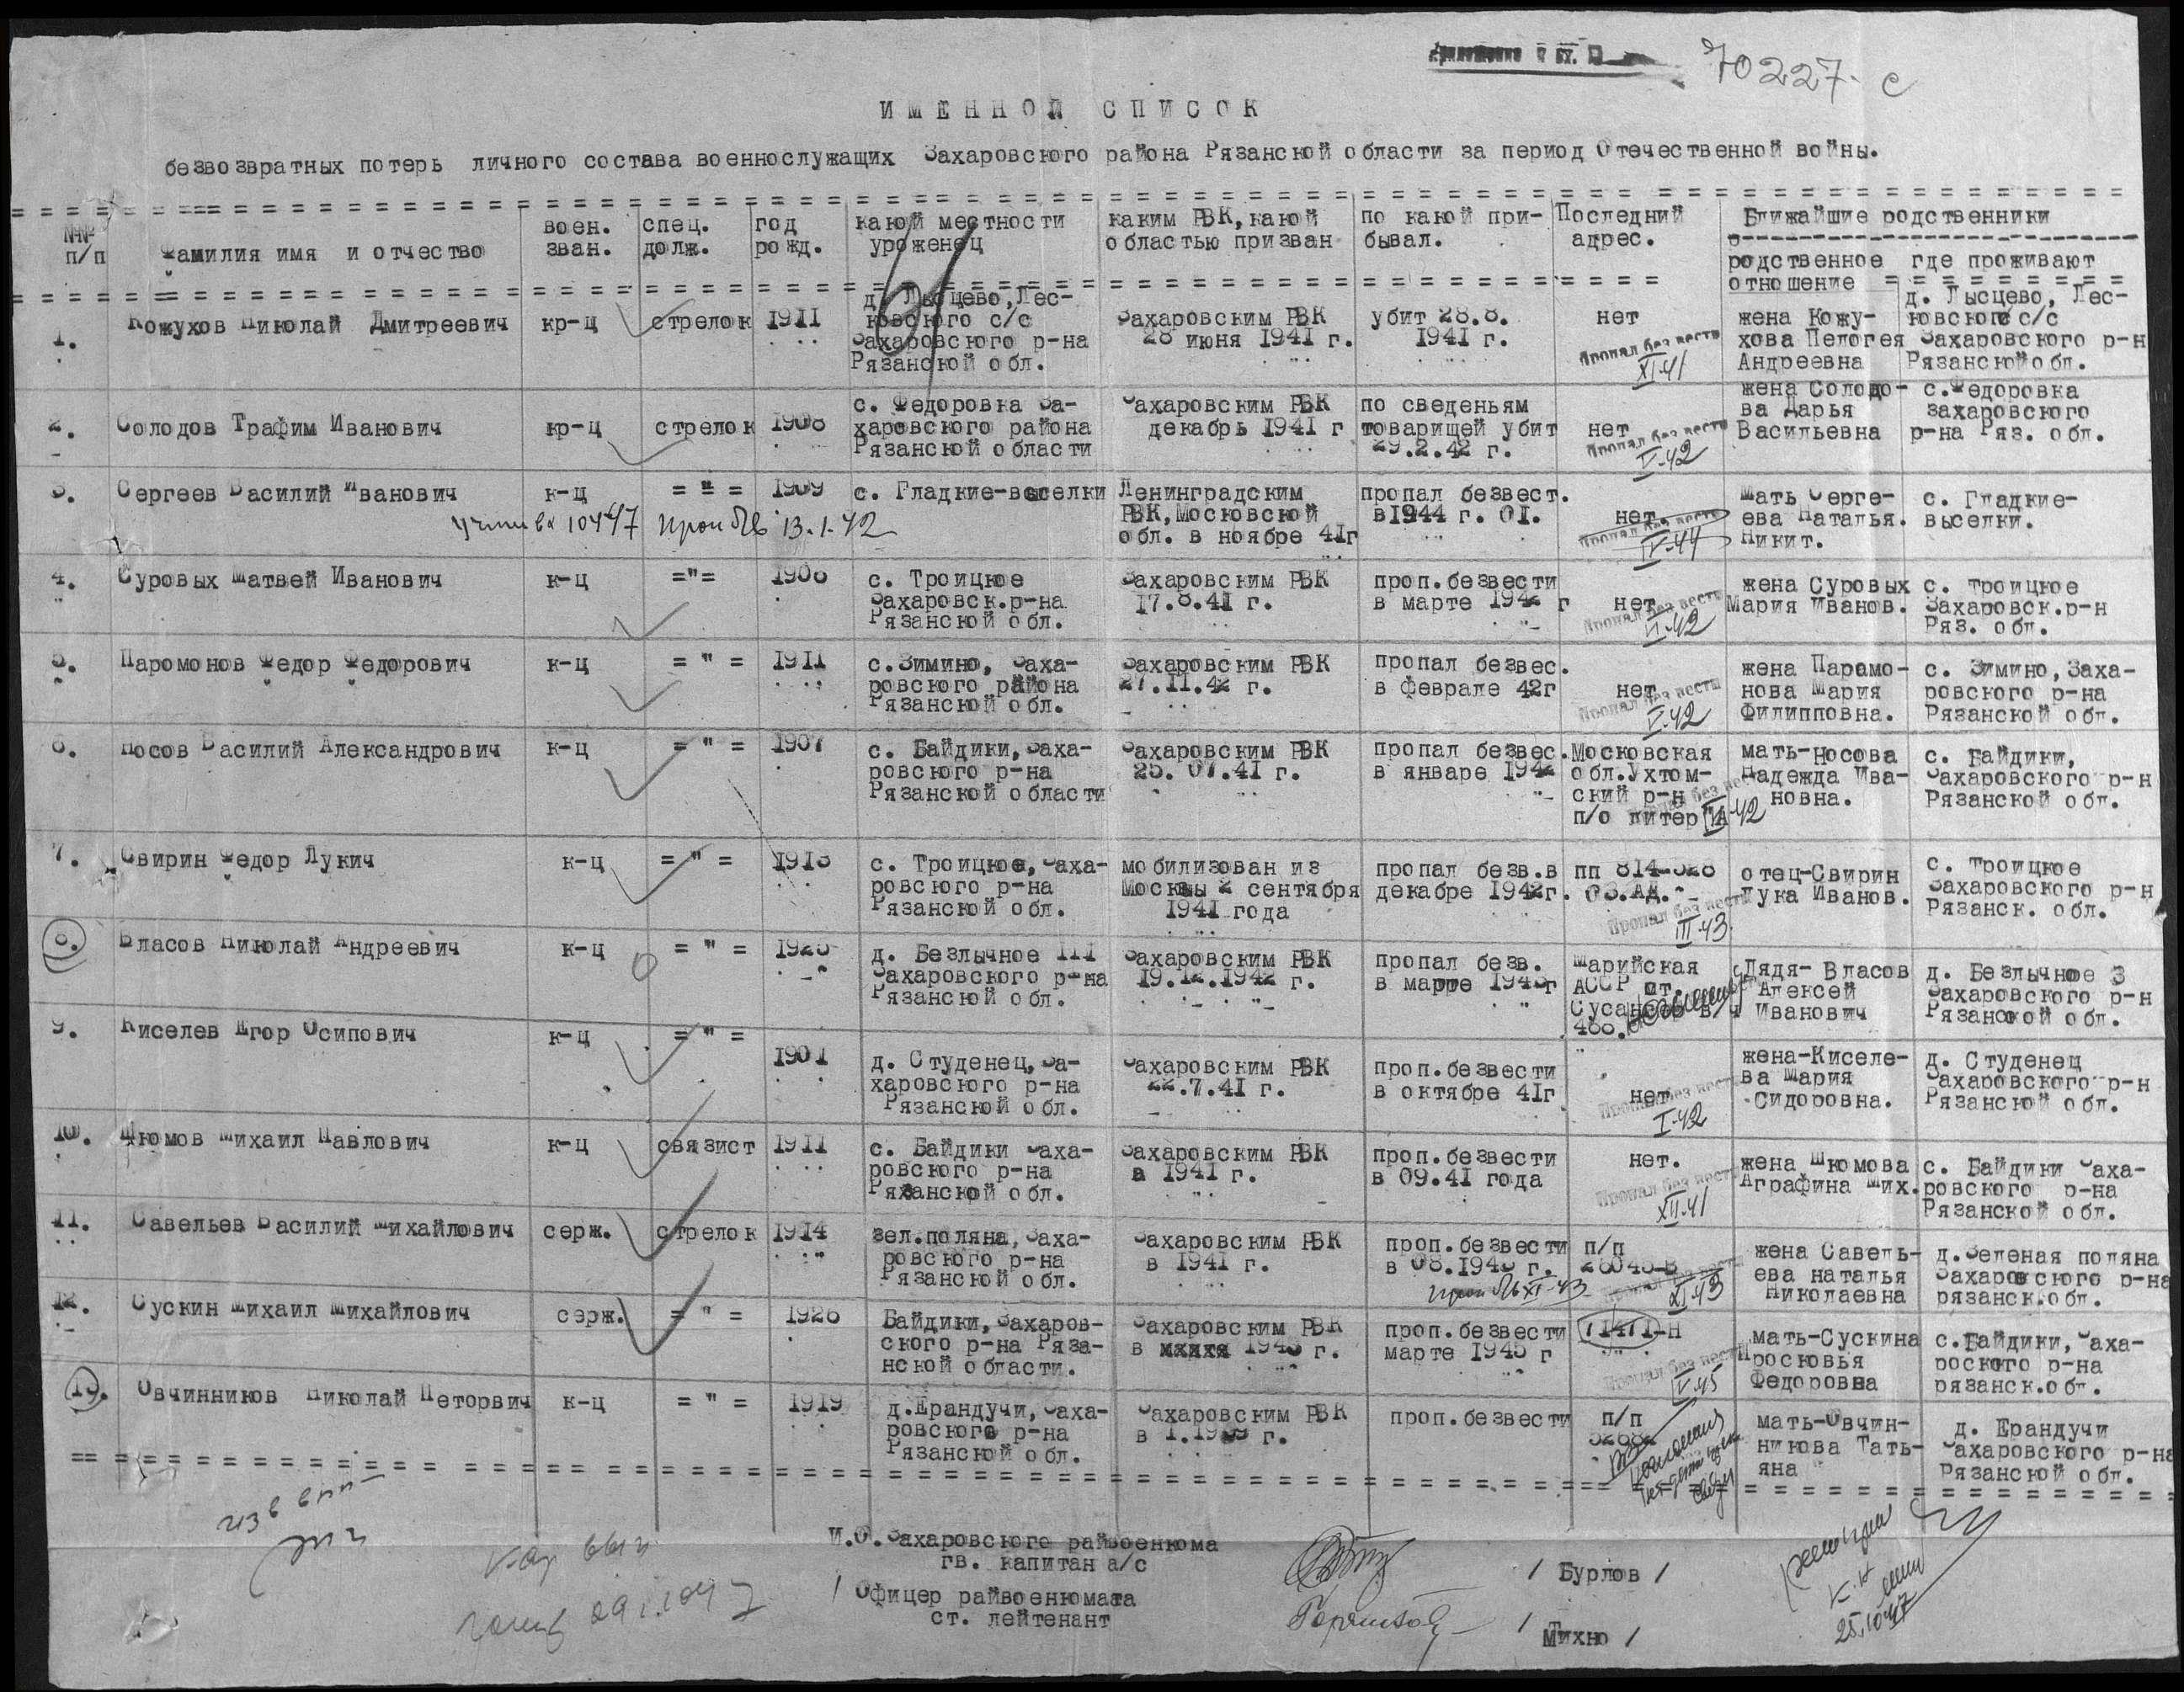 70227-с
ИМЕННОЙ СПИСОК
безвозвратных потерь личного состава военнослужащих Захаровского района Рязанской области за период Отечественной войны.
№№ п/п
Фамилия имя и отчество
воен. зван.
спец. долж.
год рожд.
какой местности уроженец
каким РВК, какой областью призван
по какой при- бывал.
Последний адрес.
Ближайшие родственники
родственное отношение
где проживают
1.
Кожухов Николай Дмитреевич
кр-ц
стрелок
1911
д. Лысцево, Лес-
ковского с/с
Захаровского р-на
Рязанской обл.
Захаровским РВК
28 июня 1941 г.
убит 28.8.
1941 г.
нет
Пропал без вести
XI-41
жена Кожу-
хова Пелогея
Андреевна
д. Лысцево, Лес-
ковского с/с
Захаровского р-н
Рязанской обл.
2.
Солодов Трафим Иванович
кр-ц
стрелок
1908
с. Федоровка За-
харовского района
Рязанской области
Захаровским РВК
декабрь 1941 г
по сведеньям
товарищей убит
29.2.42 г.
нет
Пропал без вести
V-42
жена Солодо-
ва Дарья
Васильевна
с. Федоровка
захаровского
р-на Ряз. обл.
3.
Сергеев Василий Иванович
к-ц
= " =
1909
с. Гладкие-выселки
Ленинградским
РВК, Московской
обл. в ноябре 41г
пропал безвест.
в 1944 г. 01.
нет
Пропал без вести
IV-44
мать Серге-
ева Наталья.
Никит.
с. Гладкие-
выселки.
10447 проп б/в 13.1.42
4.
Суровых Матвей Иванович
к-ц
="=
1908
с. Троицкое
Захаровск.р-на
Рязанской обл.
Захаровским РВК
17.8.41 г.
проп.безвести
в марте 1942 г
нет
Пропал без вести
VI-42
жена Суровых
Мария Иванов.
с. Троицкое
Захаровск.р-н
Ряз. обл.
5.
Паромонов Федор Федорович
к-ц
= " =
1911
с.Зимино, Заха-
ровского района
Рязанской обл.
Захаровским РВК
27.11.42 г.
пропал безвес.
в феврале 42г
нет
Пропал без вести
V-42
жена Парамо-
нова Мария
Филипповна.
с. Зимино, Заха-
ровского р-на
Рязанской обл.
6.
Носов Василий Александрович
к-ц
= " =
1907
с. Байдики, Заха-
ровского р-на
Рязанской области
Захаровским РВК
25. 07.41 г.
пропал безвес.
в январе 1942
Московская
обл.Ухтом-
ский р-н
п/о литер
мать-Носова
Надежда Ива-
новна.
с. Байдики,
Захаровского р-н
Рязанской обл.
7.
Свирин Федор Лукич
к-ц
= " =
1913
с. Троицкое, Заха-
ровского р-на
Рязанской обл.
мобилизован из
Москвы 2 сентября
1941 года
пропал безв.в
декабре 1942г.
пп 814-328
03.АД.
Пропал без вести
III-43
отец-Свирин
Лука Иванов.
с. Троицкое
Захаровского р-н
Рязанск. обл.
8.
Власов Николай Андреевич
к-ц
= " =
1925
д. Безлычное III
Захаровского р-на
Рязанской обл.
Захаровским РВК
19.12.1942 г.
пропал безв.
в марте 1943г
Марийская
АССР ст.
Дядя- Власов
Алексей
Иванович
д. Безлычное 3
Захаровского р-н
Рязанской обл.
9.
Киселев Егор Осипович
к-ц
= " =
1901
д. Студенец, За-
харовского р-на
Рязанской обл.
Захаровским РВК
22.7.41 г.
проп.безвести
в октябре 41г
нет
Пропал без вести
I-42
жена-Киселе-
ва Мария
Сидоровна.
д. Студенец
Захаровского р-н
Рязанской обл.
10.
Шюмов Михаил Павлович
к-ц
связист
1911
с. Байдики Заха-
ровского р-на
Рязанской обл.
Захаровским РВК
в 1941 г.
проп.безвести
в 09.41 года
нет.
Пропал без вести
XII-41
жена Шюмова
Аграфина Мих.
с. Байдики Заха-
ровского р-на
Рязанской обл.
11.
Савельев Василий Михайлович
серж.
стрелок
1914
зел.поляна, Заха-
ровского р-на
Рязанской обл.
Захаровским РВК
в 1941 г.
проп.безвести
в 08.1943 г.
проп б/в XI-43
п/п
28045-В
XI-43
жена Савель-
ева наталья
Николаевна
д.Зеленая поляна
Захаровского р-на
рязанск.обл.
12.
Сускин Михаил Михайлович
серж.
= " =
1926
Байдики, Захаров-
ского р-на Ряза-
нской области.
Захаровским РВК
в 1943 г.
проп.безвести
марте 1945 г
71471-Н
Пропал без вести
V-45
мать-Сускина
Просковья
Федоровна
с.Байдики, Заха-
роского р-на
рязанск.обл.
13.
Овчинников Николай Петорвич
к-ц
= " =
1919
д.Ерандучи, Заха-
ровского р-на
Рязанской обл.
Захаровским РВК
в 1.1939 г.
проп.безвести
п/п
мать-Овчин-
никова Тать-
яна
д. Ерандучи
Захаровского р-на
Рязанской обл.
И.О. Захаровского райвоенкома
гв. капитан а/с
/ Бурлов /
Офицер райвоенкомата
ст. лейтенант
/ Михно /
25.10.47